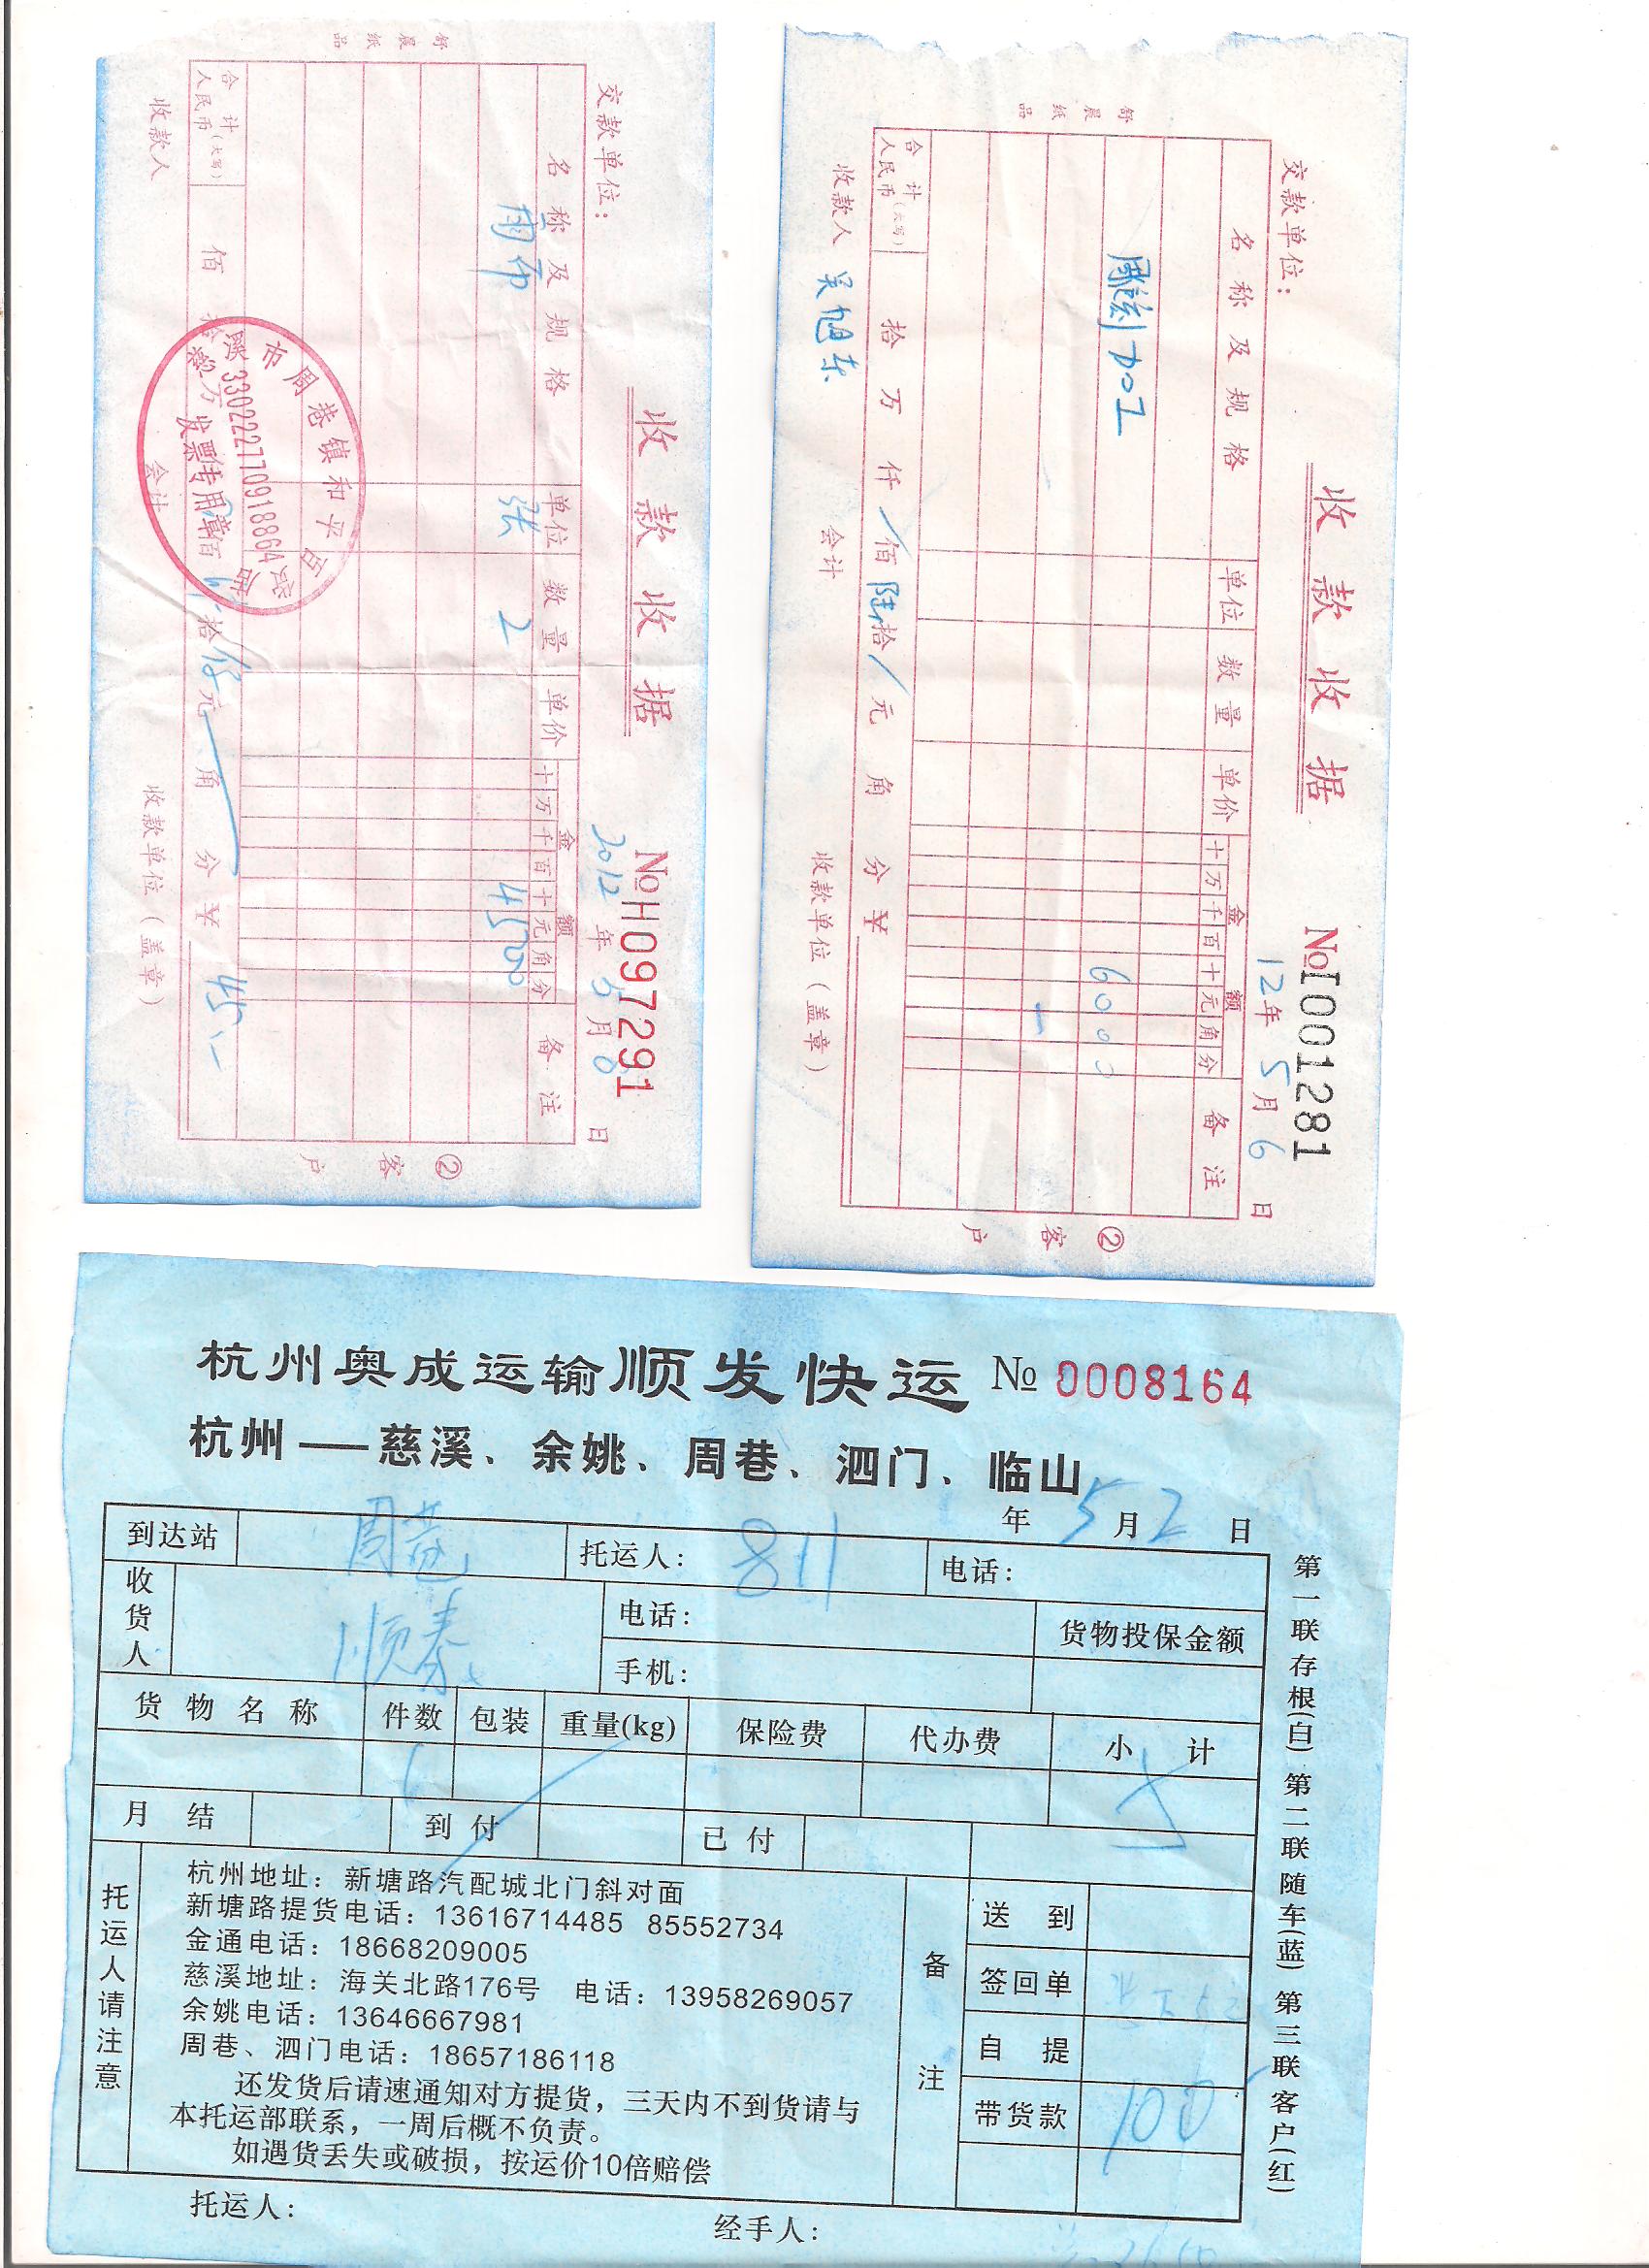 收款收据
No H0972291
交款单位：
2012年5月8日
名称及规格 单位 数量 单价 金额 备注
十万千百十元角分
雨布 张 2 4500
合计人民币(大写) 佰拾万仟佰肆拾伍元角分￥45
收款人 会计 收款单位(盖章)
②客户
舒晨纸品
慈溪市周巷镇和平百货店
330222770918864
发票专用章
收款收据
No I001281
交款单位：
12年5月6日
名称及规格 单位 数量 单价 金额 备注
十万千百十元角分
雕刻加工 6000
合计人民币(大写) 拾万仟/佰陆拾/元角分￥
收款人 吴旭东 会计 收款单位(盖章)
②客户
舒晨纸品
杭州奥成运输顺发快运 № 0008164
杭州——慈溪、余姚、周巷、泗门、临山
年5月2日
到达站 周巷 托运人：811 电话：
收货人 顺泰 电话： 货物投保金额
手机：
货物名称 件数 包装 重量(kg) 保险费 代办费 小计
6 5
月结 到付 已付
托运人请注意
杭州地址：新塘路汽配城北门斜对面
新塘路提货电话：13616714485 85552734
金通电话：18668209005
慈溪地址：海关北路176号 电话：13958269057
余姚电话：13646667981
周巷、泗门电话：18657186118
还发货后请速通知对方提货，三天内不到货请与
本托运部联系，一周后概不负责。
如遇货丢失或破损，按运价10倍赔偿
备注
送到
签回单
自提
带货款 100
托运人： 经手人：
第一联存根(白)第二联随车(蓝)第三联客户(红)